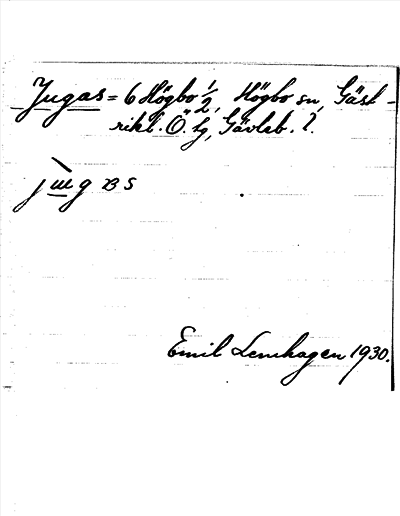 Jugas = 6 Högbo ½, Högbo sn, Gäst-
rikl. Ö. tg, Gävleb. l.
jɯgɐs
Emil Lenhagen 1930.